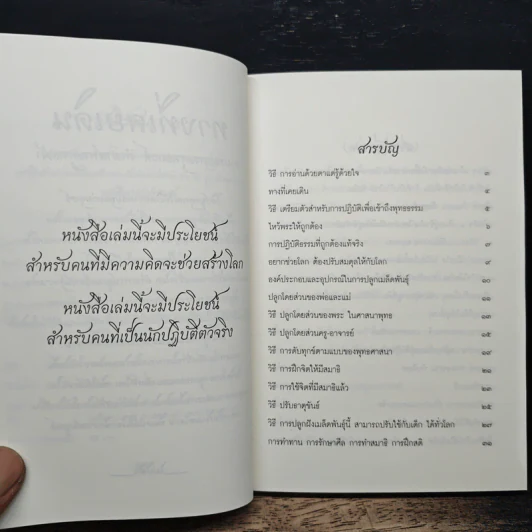 หนังสือเล่มนี้จะมีประโยชน์
สำหรับคนที่มีความคิดจะช่วยสร้างโลก
หนังสือเล่มนี้จะมีประโยชน์
สำหรับคนที่เป็นนักปฏิบัติตัวจริง
สารบัญ
วิธี การอ่านด้วยตาแต่รู้ด้วยใจ ๓
ทางที่เคยเดิน ๔
วิธี เตรียมตัวสำหรับการปฏิบัติเพื่อเข้าถึงพุทธธรรม ๕
ไหว้พระให้ถูกต้อง ๖
การปฏิบัติธรรมที่ถูกต้องแท้จริง ๗
อยากช่วยโลก ต้องปรับสมดุลให้กับโลก ๙
องค์ประกอบและอุปกรณ์ในการปลูกเมล็ดพันธุ์ ๑๐
ปลูกโดยส่วนของพ่อและแม่ ๑๑
วิธี ปลูกโดยส่วนของพระ ในศาสนาพุทธ ๑๓
วิธี ปลูกโดยส่วนครู-อาจารย์ ๑๕
วิธี การดับทุกข์ตามแบบของพุทธศาสนา ๑๙
วิธี การฝึกจิตให้มีสมาธิ ๒๑
วิธี การใช้จิตที่มีสมาธิแล้ว ๒๓
วิธี ปรับธาตุขันธ์ ๒๕
วิธี การปลูกฝังเมล็ดพันธุ์นี้ สามารถปรับใช้กับเด็ก ได้ทั่วโลก ๒๗
การทำทาน การรักษาศีล การทำสมาธิ การฝึกสติ ๓๑